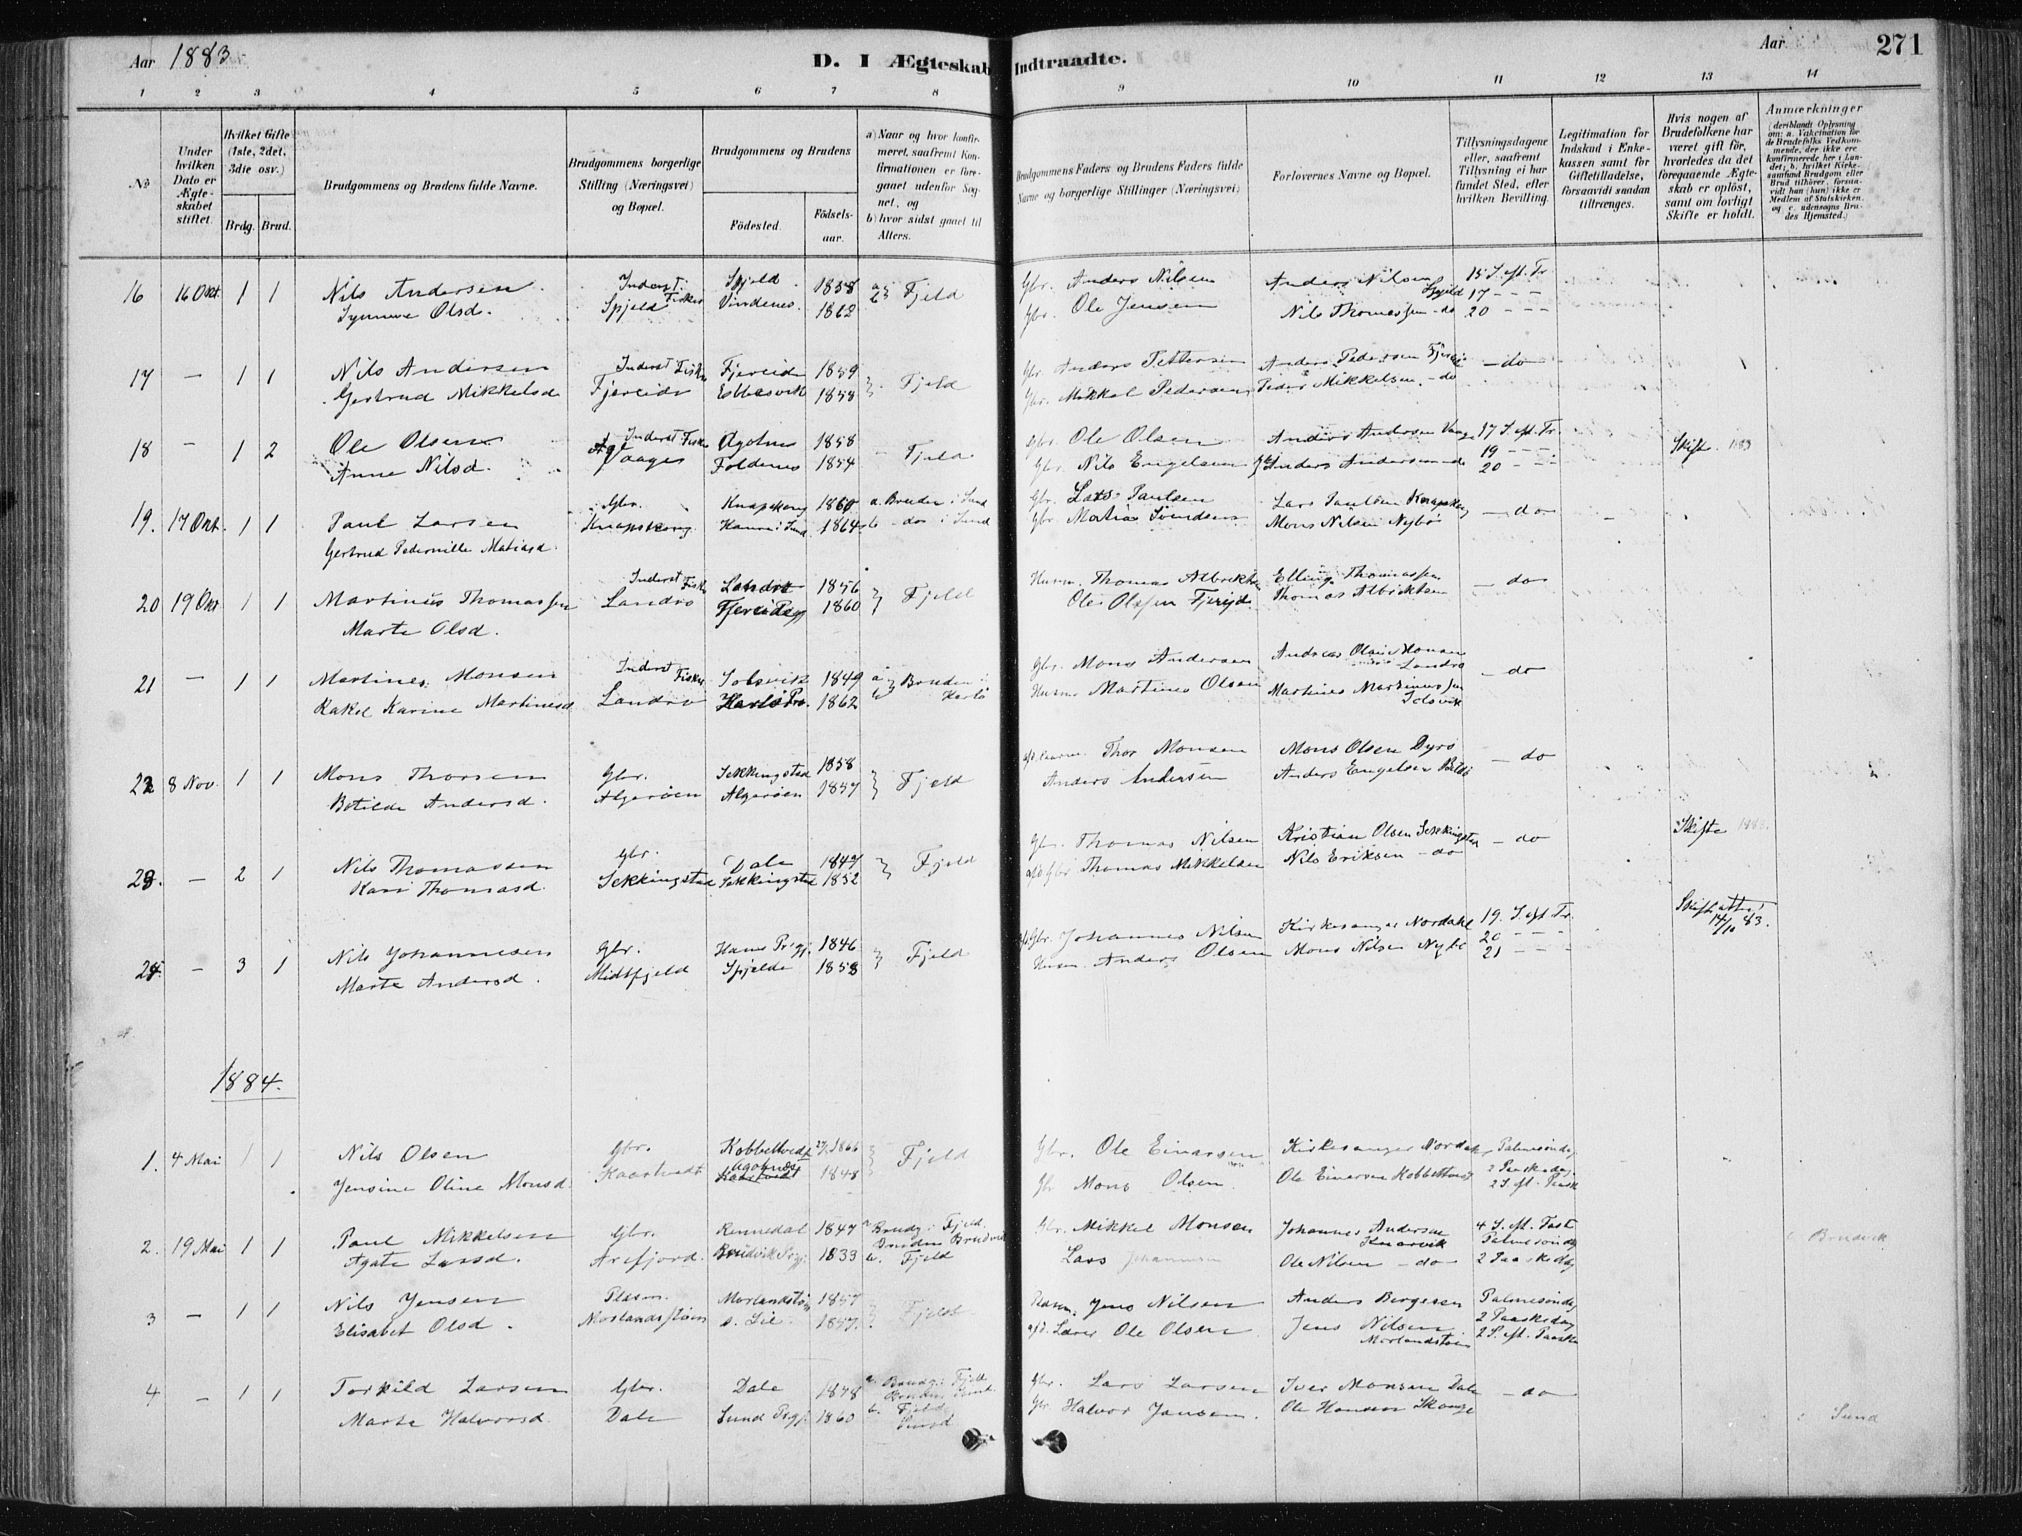 Aar 1883
D. I Ægteskab Indtraadte.
Aar
271
1 2 3 4 5 6 7 8 9 10 11 12 13 14
No
Under hvilken Dato er Ægteskabet stiftet.
Hvilket Gifte (1ste, 2det, 3die osv.)
Brdg. Brud.
Brudgommens og Brudens fulde Navne.
Brudgommens borgerlige Stilling (Næringsvei) og Bopæl.
Brudgommens og Brudens
Födested. Födsels-aar.
a) Naar og hvor konfirmeret, saafremt Konfirmationen er foregaaet udenfor Sognet, og
b) hvor sidst gaaet til Alters.
Brudgommens Faders og Brudens Faders fulde Navne og borgerlige Stillinger (Næringsvei)
Forlovernes Navne og Bopæl.
Tillysningsdagene eller, saafremt Tillysning ei har fundet Sted, efter hvilken Bevilling.
Legitimation for Indskud i Enkekassen samt for Giftetilladelse, forsaavidt saadan tiltrænges.
Hvis nogen af Brudefolkene har været gift för, hvorledes da det foregaaende Ægteskab er oplöst, samt om lovligt Skifte er holdt.
Anmærkninger (deriblandt Oplysning om: a. Vakcination for de Brudefolks Vedkommende, der ikke ere konfirmerede her i Landet; b. hvilket Kirkesamfund Brudgom eller Brud tilhörer, forsaavidt han (hun) ikke er Medlem af Statskirken, og c. udensogns Brudes Hjemsted.)
16 16 Okt. 1 1 Nils Andersen Inderst Fisker Spjeld 1858 a b Fjeld Gbr. Anders Nilsen Anders Nilsen Spjeld 15 S. eft. Tr.
Synneve Olsd. Spjeld Vindenes 1862 Gbr. Ole Jensen Nils Thomassen - do 17 - - - 20 - - -
17 - 1 1 Nils Andersen Inderst Fisker Fjereide 1859 Fjeld Gbr Anders Pettersen Anders Pedersen Fjereide - do
Gertrud Mikkelsd Fjereide Ebbesvik 1858 Gbr. Mikkel Pedersen Peder Mikkelsen - do
18 - 1 2 Ole Olsen Inderst Fisker Agotnes 1858 - Fjeld Gbr Ole Olsen Anders Andersen Vaage 17 S. eft. Tr. Skifte 1883
Anne Nilsd. Vaage Foldenes 1854 Gbr. Nils Engelsen Anders Andersen do 19 - - - 20 - - -
19. 17 Okt. 1 1 Paul Larsen Gbr. Knapskog 1860 a. Bruden i Sund Gbr. Lars Paulsen Lars Paulsen Knapskog - do
Gertrud Pedernille Matiasd. Knapskog Hamre i Sund 1864 b - do i Sund Gbr Matias Svendsen Mons Nilsen Nybø
20 19 Okt 1 1 Martinus Thomassen Inderst Fisker Landro 1856 Fjeld Husm. Thomas Albrektsen Elling Thomassen - do
Marte Olsd. Landro Fjereide 1860 Ole Olssen Fjereide Thomas Albriktsen
21 - 1 1 Martines Monsen Inderst Fisker Solsvik 1849 a b Bruden i Herlø Gbr. Mons Andersen Andreas Olsen Monsen Landro - do
Rakel Karine Martinesd Landro Herlø Pr. 1862 Husm Martines Olsen Martines Martinussen Solsvik
22 8 Nov. 1 1 Mons Thorsen Gbr. Sekkingstad 1858 Fjeld Thor Monsen Mons Olsen Dyrø - do
Botilde Andersd. Algerøen Algerøen 1857 Anders Andersen Anders Engelsen
23. - 2 1 Nils Thomassen Gbr. Dale 1847 Fjeld Gbr. Thomas Nilsen Kristian Olsen Sekkingstad - do Skifte 1883.
Kari Thomasd. Sekkingstad Sekkingstad 1852 afd Gbr Thomas Mikkelsen Nils Eriksen - do
24. - 3 1 Nils Johannesen Gbr. Hame Prgj. 1846 Fjeld Gbr. Johannes Nilsen Kirkesanger Nordahl 19. S. eft Tr. Skifteattest 14/10 83.
Marte Andersd. Midtfjeld Spjelde 1858 Husm Anders Olsen Mons Nilsen Nybø 20 - - - 21 - -
1884.
1. 4 Mai 1 1 Nils Olsen Gbr. Kobbeltvedt 27/ 1866 Fjeld Gbr. Ole Einarsen Kirkesanger Nordahl Palmesøndag
Jensine Oline Monsd. Kaartvedt Agotnes 1848 Gbr Mons Olsen Ole Einarsen Kobbeltvedt 2 Paaskedag 2 S. eft. Paaske
2. 19 Mai 1 1 Paul Mikkelsen Gbr. Rennedal 1847 a Brudg i Fjeld Bruden Brudvik Gbr. Mikkel Monsen Johannes Andersen Knarvik 4 S. eft. Faste Palmesøndag
Agate Larsd. Arefjord. Brudvik Prgj. 1833 b. Fjeld Lars Johannesen Ole Nilsen - do 2 Paaskedag c Brudvik
3 - 1 1 Nils Jensen Pladsm. Morlandstøen 1857 Fjeld Pladsm. Jens Nilsen Anders Børgesen Palmesøndag
Elisabet Olsd. Morlandsstøen s. Lie 1857. afd. Lærer Ole Olsen Jens Nilsen Morlandstøen 2 Paaskedag 2 S. eft. Paaske
4 - 1 1 Torkild Larsen Gbr. Dale 1848 a. Brudg. i Fjeld Bruden Sund Gbr. Lars Larsen Iver Monsen Dale - do
Marte Halvorsd. Dale Sund Prgj. 1860 b. Fjeld Sund Gbr. Halvor Jansen. Ole Hansen Skoge c Sund